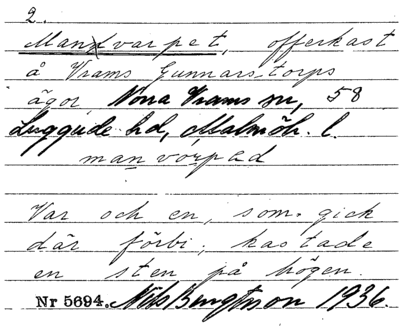 2.
Manvarpet, offerkast
å Vrams Gunnarstorps
ägor Norra Vrams sn, 58
Luggude hd, Malmöh. l.
manvorpəd
Var och en, som gick
där förbi, kastade
en sten på högen.
Nr 5694. Nils Bengtsson 1936.